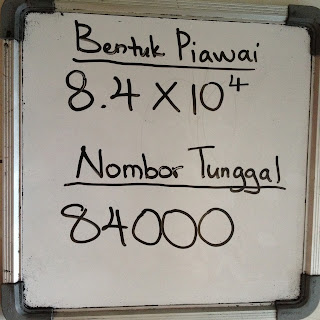 Bentuk Piawai
8.4 X 10⁴
Nombor Tunggal
84000